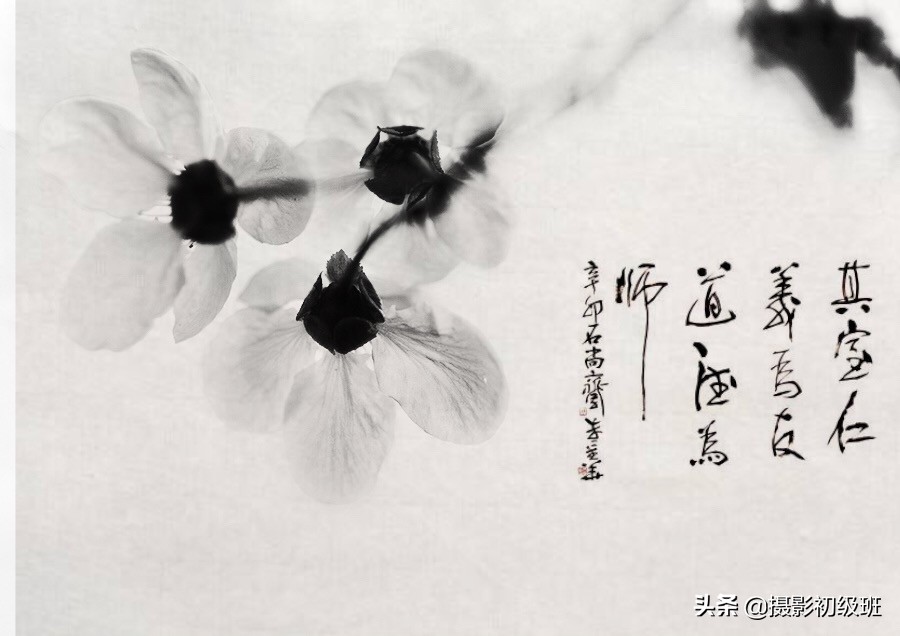 其室仁
義為友
道德為
師
辛卯石尚齋
头条 @摄影初级班